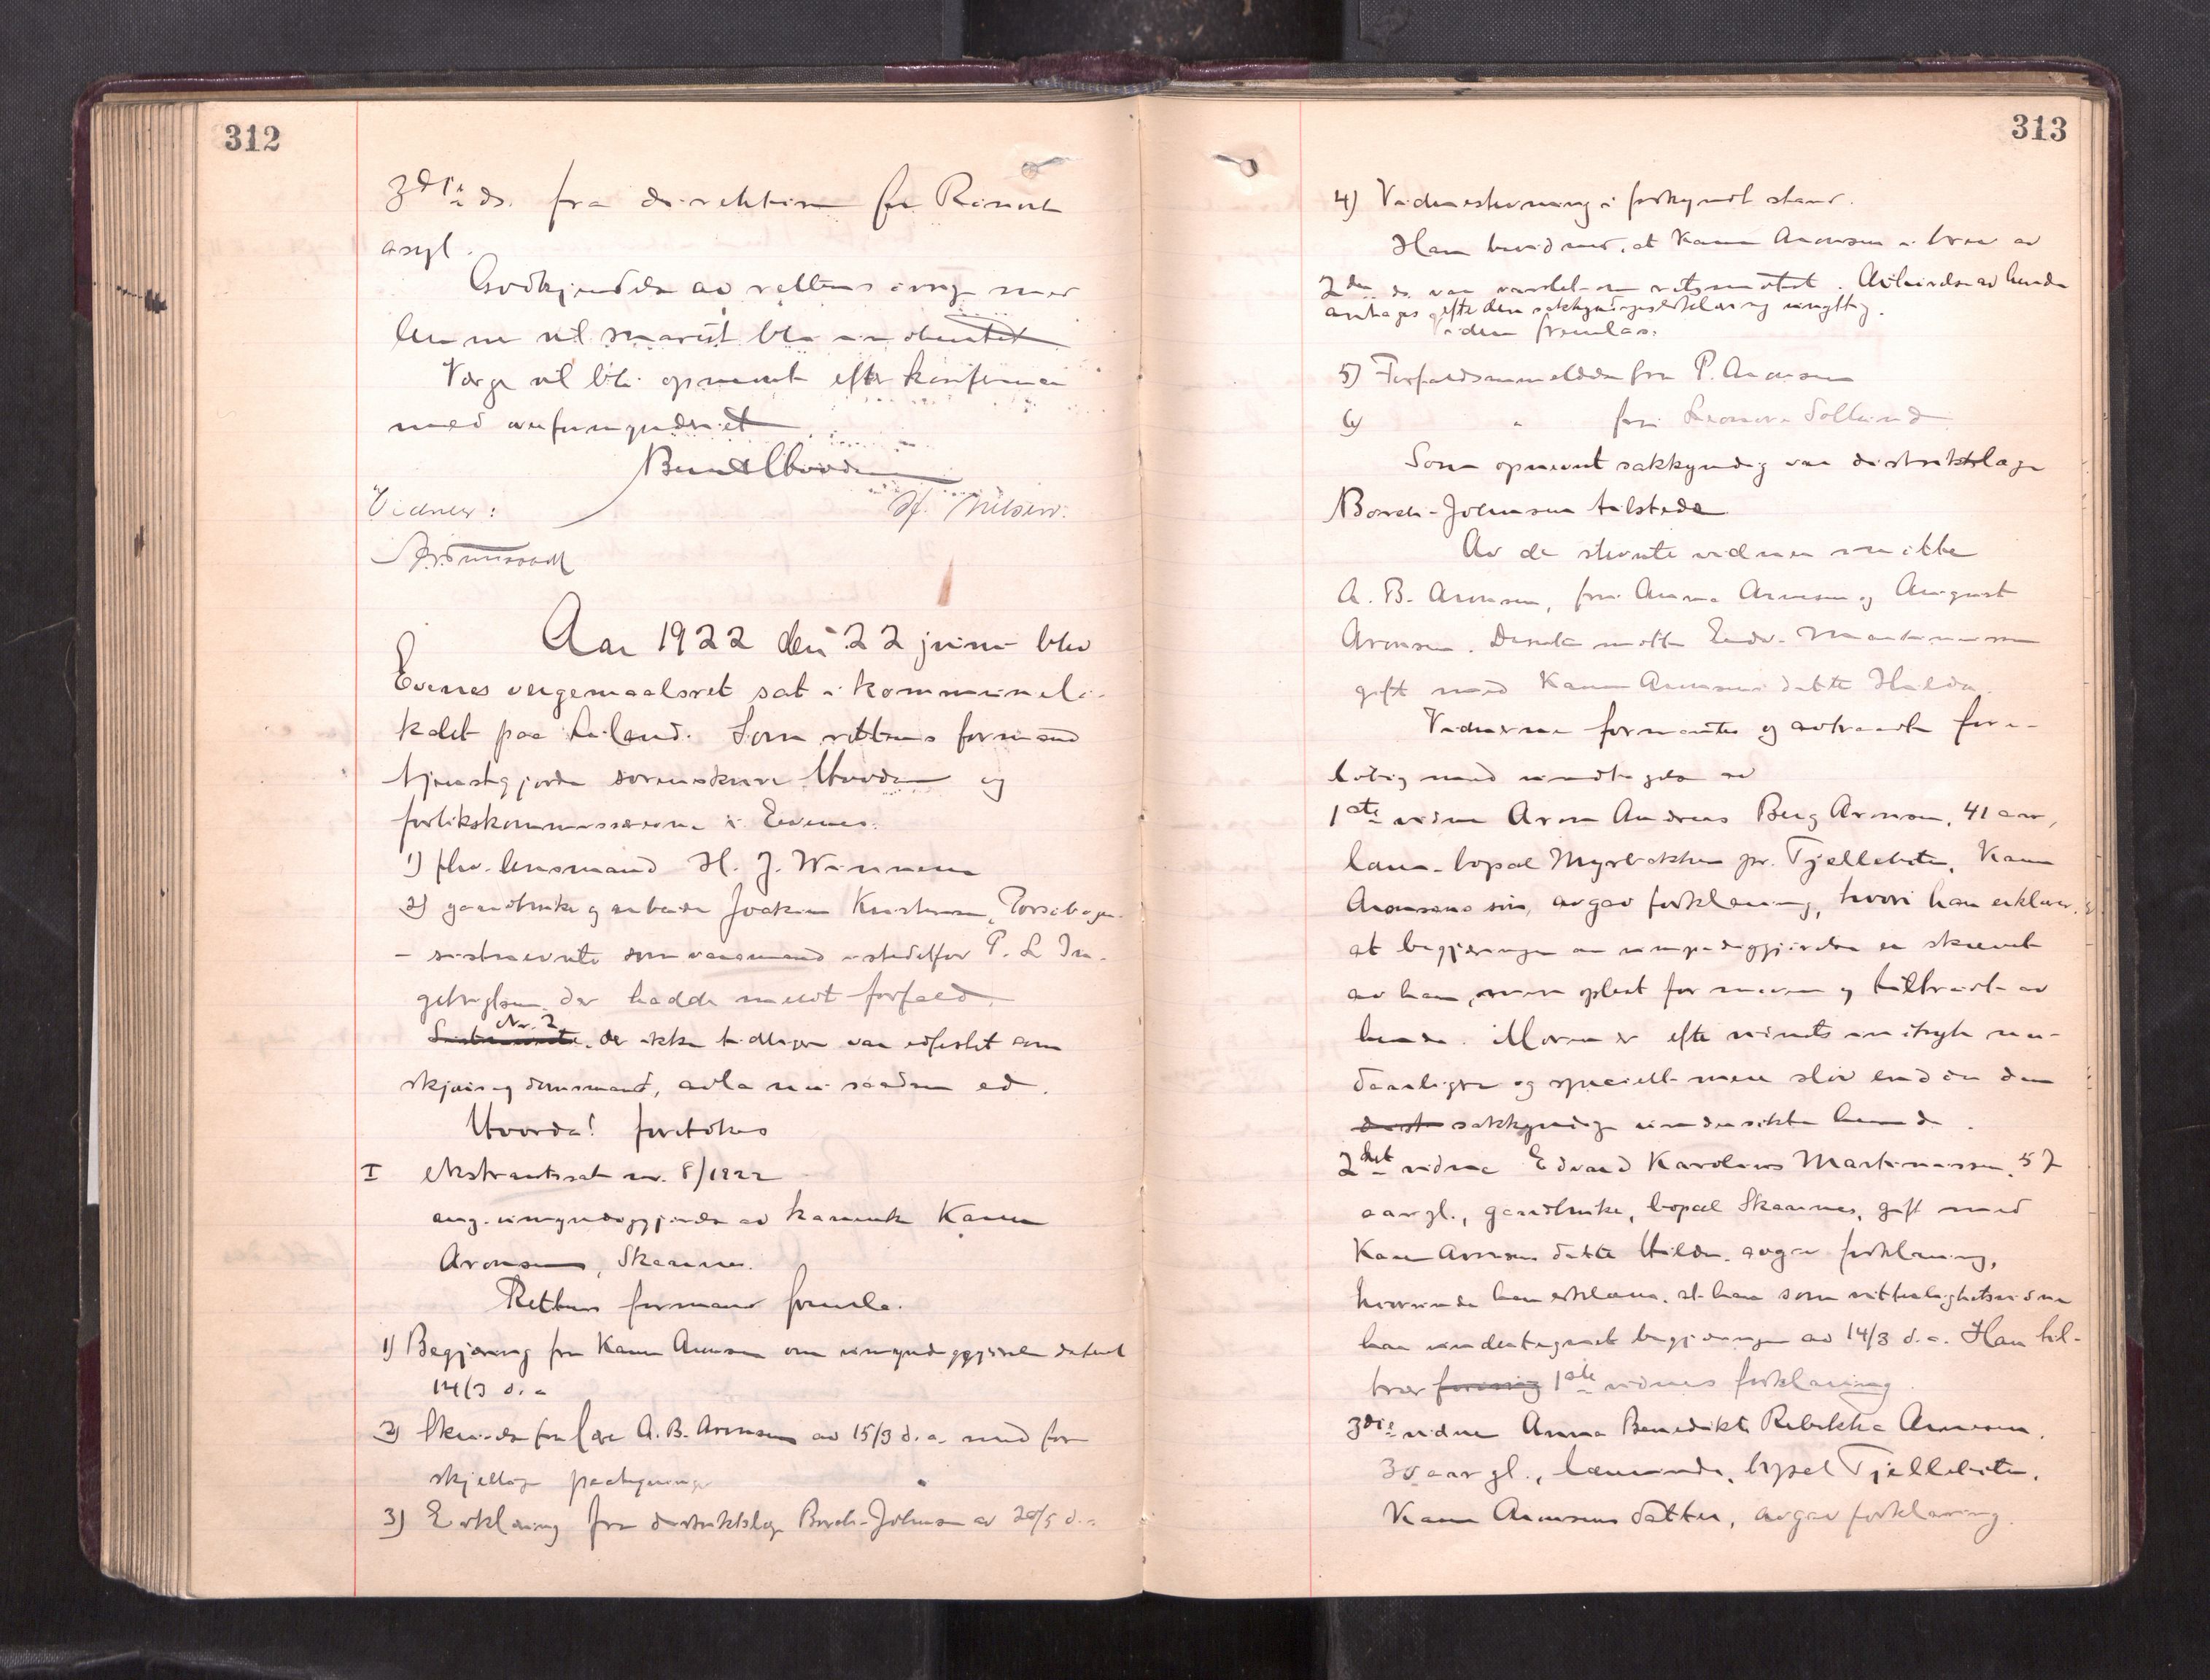 312
3die ds. fra direktøren for Rønvik
asyl.
Godkjendelse av rettens øvrige med
lemmer vil snarest bli indhentet
Værge vil bli opnævnt efter konferanse
med overformynderiet
Vidner:
H. Nilsen.
Aar 1922 den 22 juni blev
Evenes vergemaalsret sat i kommunelo-
kalet paa Liland. Som rettens formand
tjenstgjorde sorenskriver Hovdan og
forlikskommissærerne i Evenes:
1) fhv. lensmand H. J. Winnem
2) gaardbruker og arbeider Joakim Kristensen,
- sidstnævnte som varamand istedetfor P. L.
der hadde meldt forfald.
Nr. 2
Sistnævnte, der ikke tidligere var edfestet som
skjøns og domsmand, avla nu saadan ed.
Hvorda! foretokes
I ekstraretssak nr. 8/1922
ang. umyndiggjørelse av kaarenke Karen
Aronsen, Skaanes.
Rettens formand fremla:
1) Begjæring fra Karen Aronsen om umyndiggjørelse dateret
14/3 d. a
2) Skrivelse fra A. B. Aronsen av 15/3 d. a. med for
skjellige paategninger
3) Erklæring fra distriktslæge Borch-Johnsen av 20/5 d. a
313
4) Vidnestevning i forkyndt stand.
Han bevidner, at Karen Aronsen i brev av
2den ds. var varslet om retsmøtet. Avhørelse av hende
antages efter den sakkyndiges erklæring unyttig.
5) Forfaldsanmeldelse fra P. Aronsen
6) " fra
Som opnævnt sakkyndig var distriktslæge
Borch-Johnsen tilstede.
Av de stevnte vidner møtte
A. B. Aronsen, fru Anna Aronsen og August
Aronsen. Desuten møtte Edv. Martinussen
gift med Karen Aronsens datter Hilda.
Vidnerne formantes og avtraadte fore-
løbig med undtagelse av
1ste vidne Aron Andreas Berg Aronsen, 41 aar,
lærer, bopæl Myrbakken pr. Tjellebotn, Karen
Aronsens søn, avgav forklaring, hvori han erklærer,
at begjæringen om umyndiggjørelse er skrevet
av ham, men oplest for moren og tiltraadt av
hende. Moren er efter vidnets indtryk nu
daarligere og specielt mere sløv end da den
sakkyndige undersøkte hende.
2det vidne Edvard Karolius Martinussen, 57
aar gl., gaardbruker, bopæl Skaanes, gift med
Karen Aronsens datter Hilda. avgav forklaring,
hvorunder han erklærer, at han som vitterlighetsvidne
har undertegnet begjæringen av 14/3 d. a. Han til-
trær forøvrig 1ste vidnes forklaring.
3die vidne Anna Benedikte Rebekka Aronsen,
35 aar gl., lærerinde, bopæl Tjellebotn,
Karen Aronsens datter, avgav forklaring.